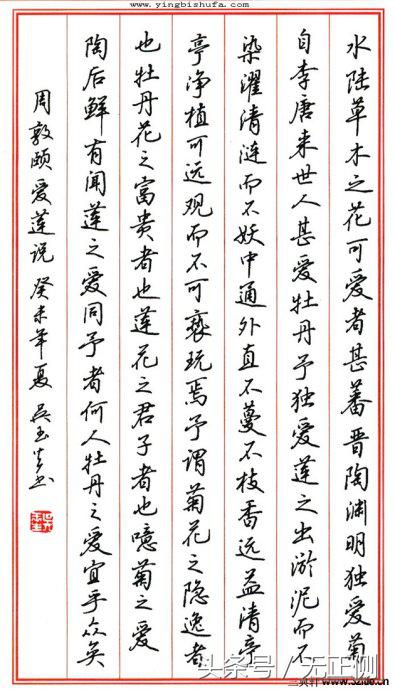 www.yingbishufa.com
水陆草木之花可爱者甚蕃晋陶渊明独爱菊
自李唐来世人甚爱牡丹予独爱莲之出淤泥而不
染濯清涟而不妖中通外直不蔓不枝香远益清亭
亭净植可远观而不可亵玩焉予谓菊花之隐逸者
也牡丹花之富贵者也莲花之君子者也噫菊之爱
陶后鲜有闻莲之爱同予者何人牡丹之爱宜乎众矣
周敦颐爱莲说 癸未年夏 吴玉生书
头条号 / 无正测